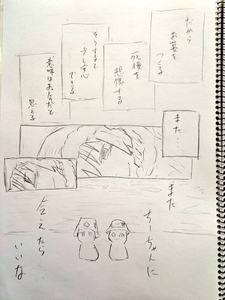 だから
お墓を
つくる
死後を
想像する
そうすると
少し安心
できる
意味はあるのだと
思える
また…
また
ちーちゃんに
会えたら
いいな